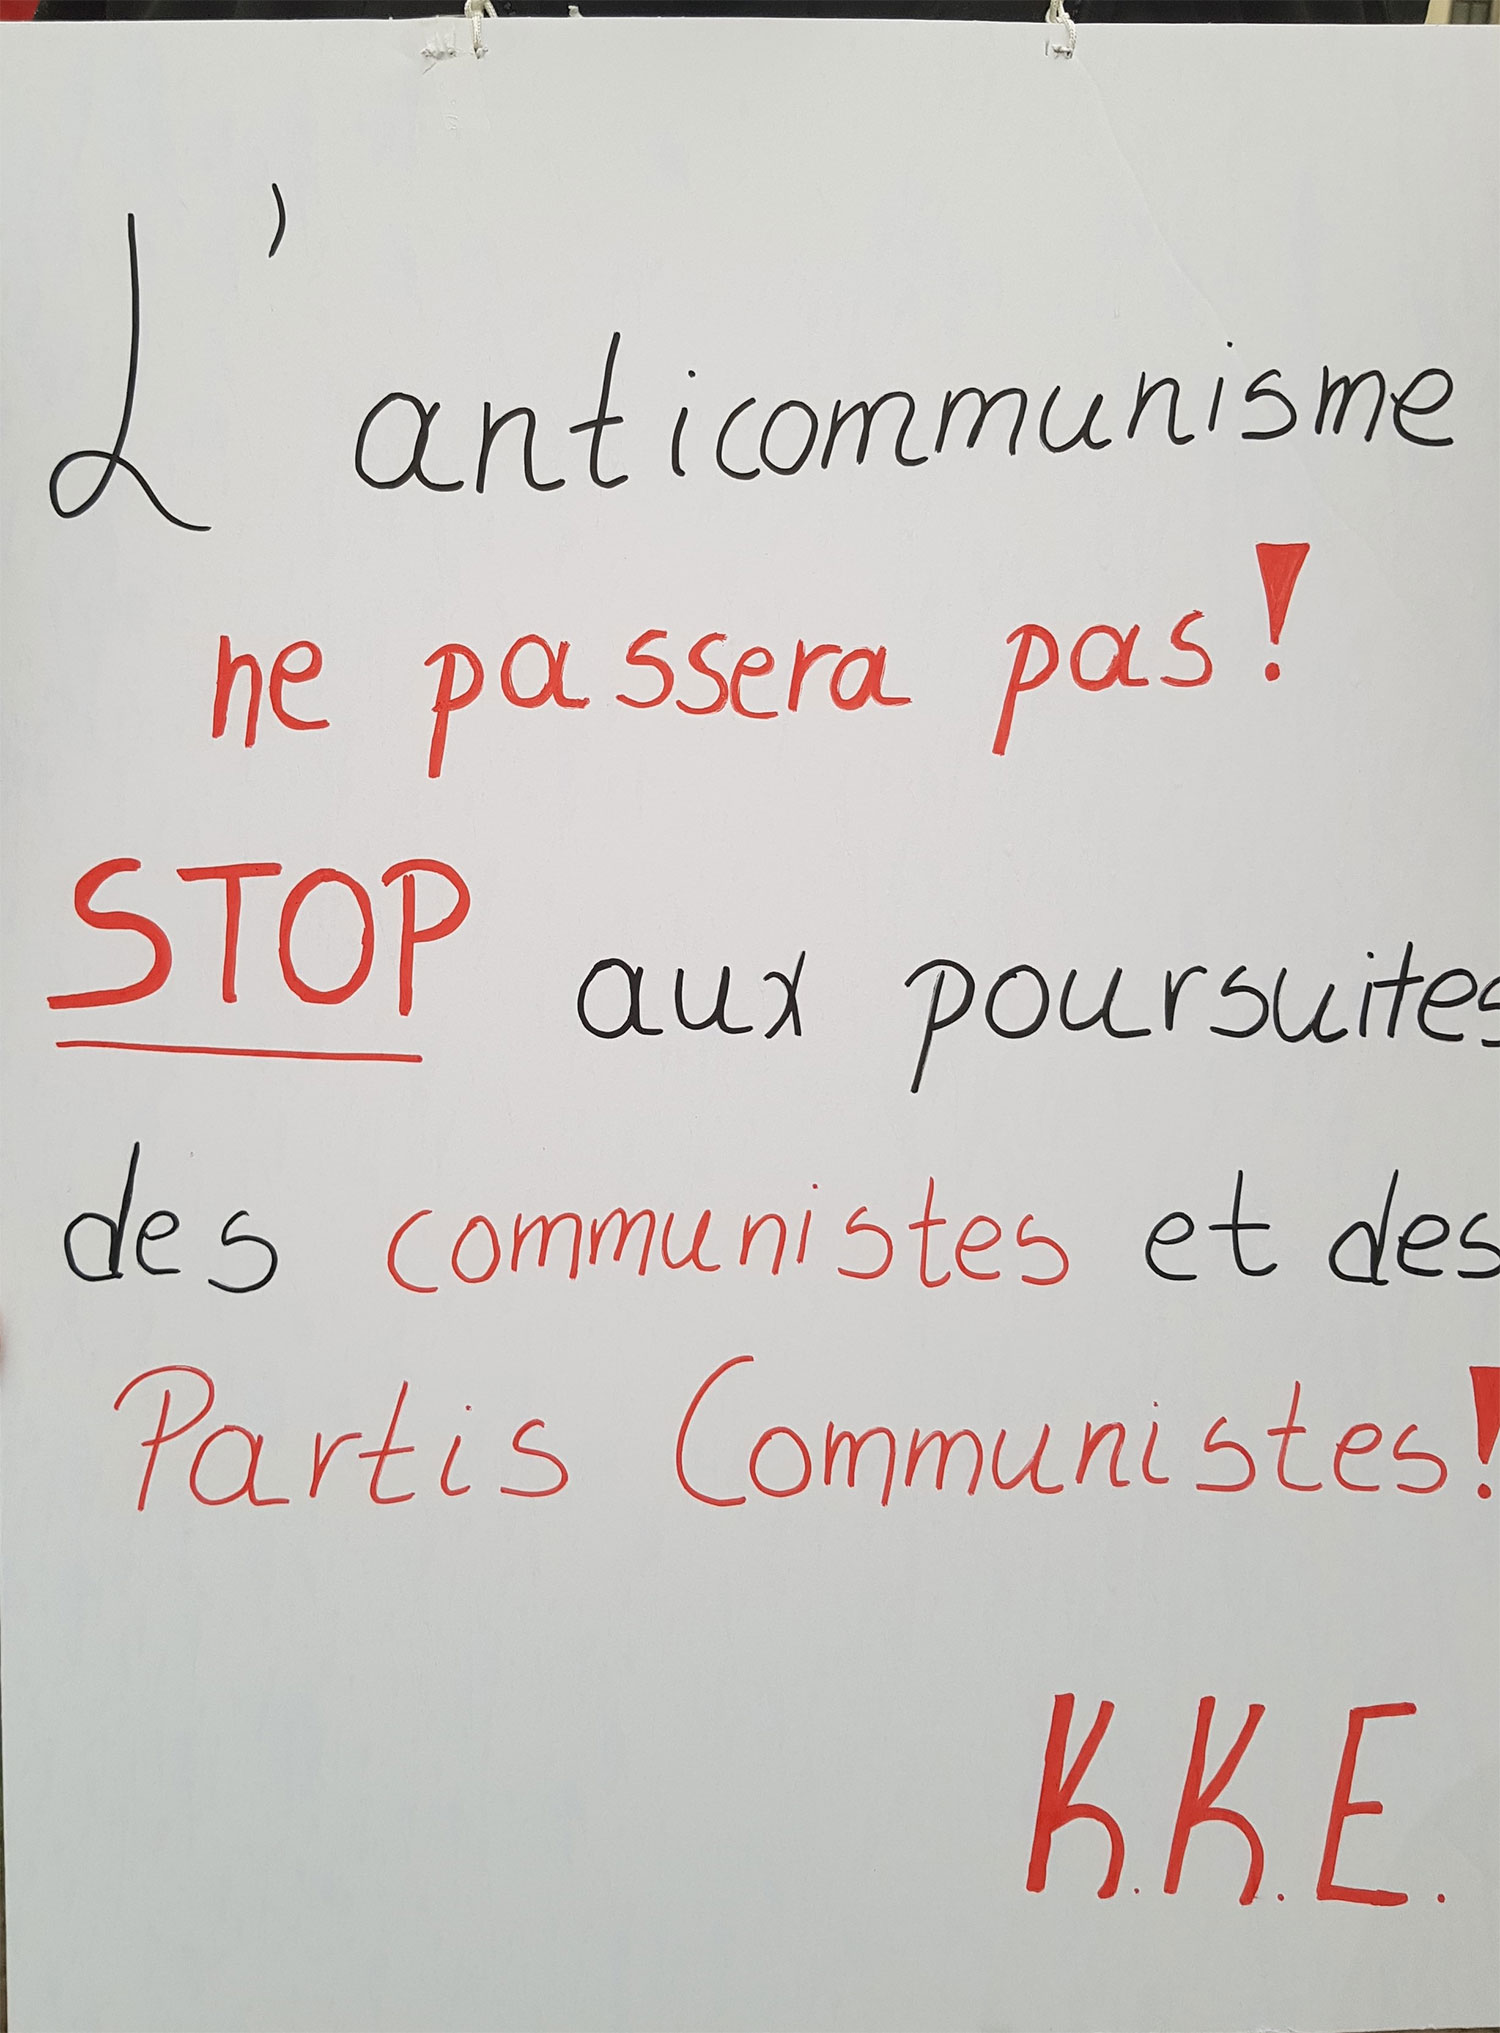 L'anticommunisme
ne passera pas!
STOP aux poursuites
des communistes et des
Partis Communistes!
K.K.E.